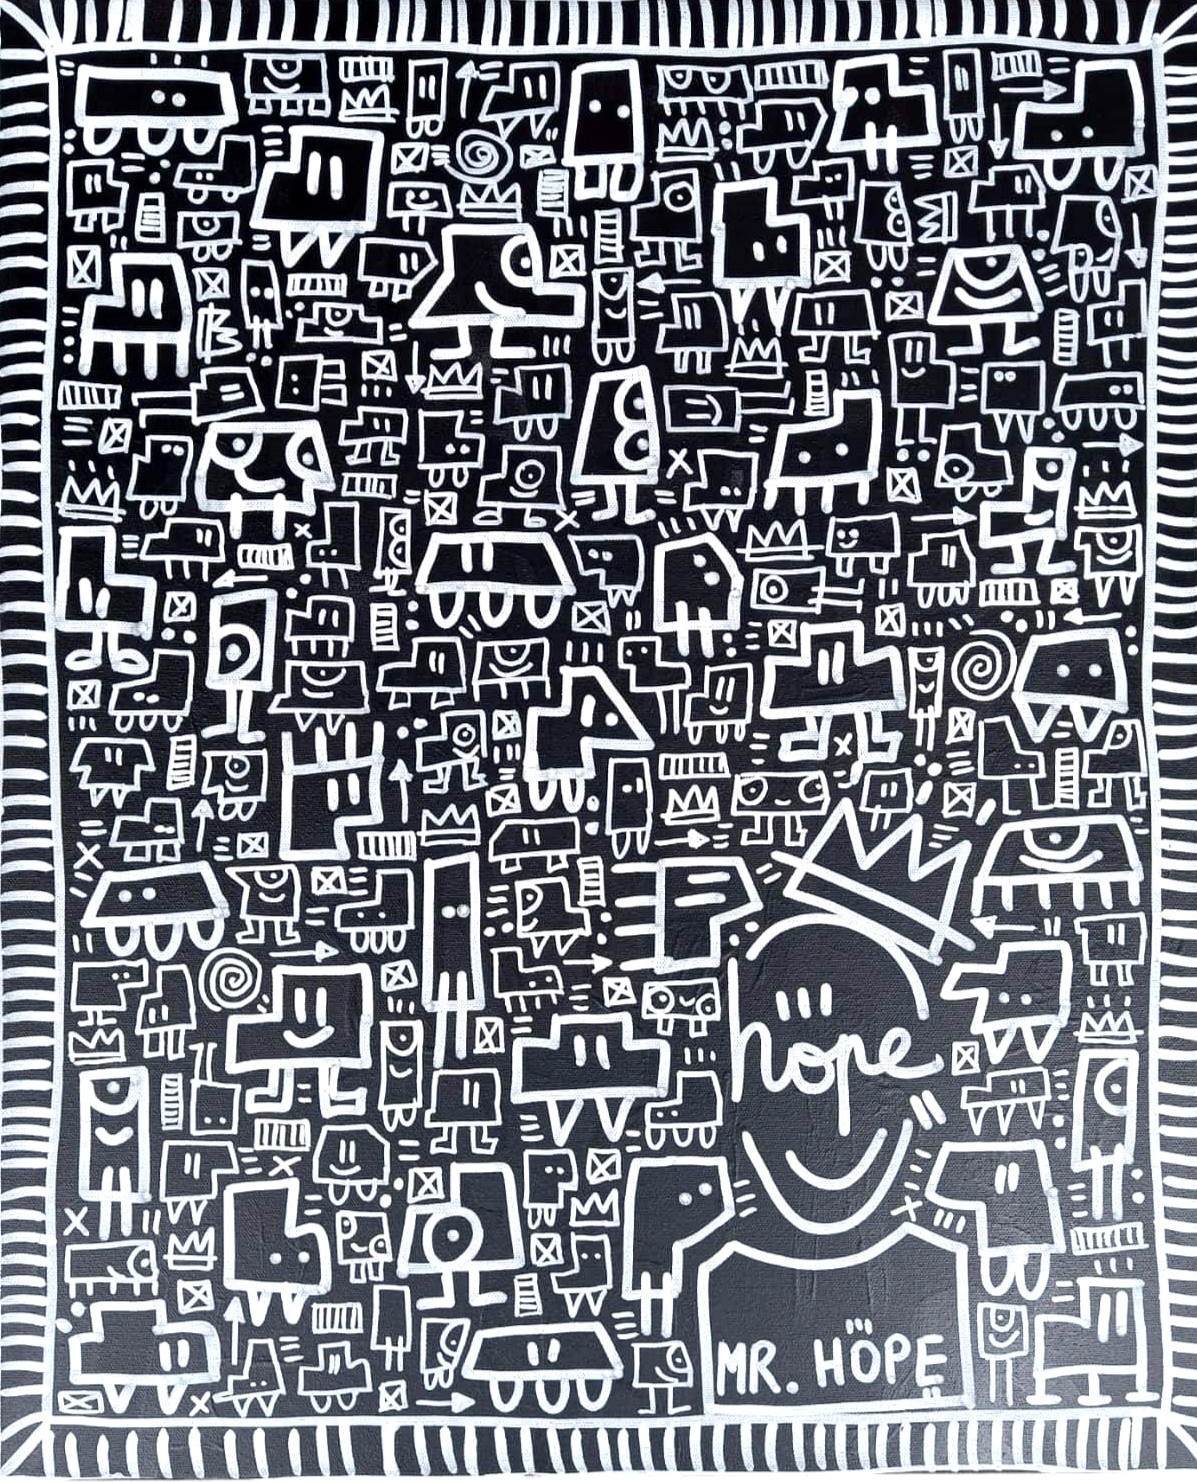 hope
MR. HOPE